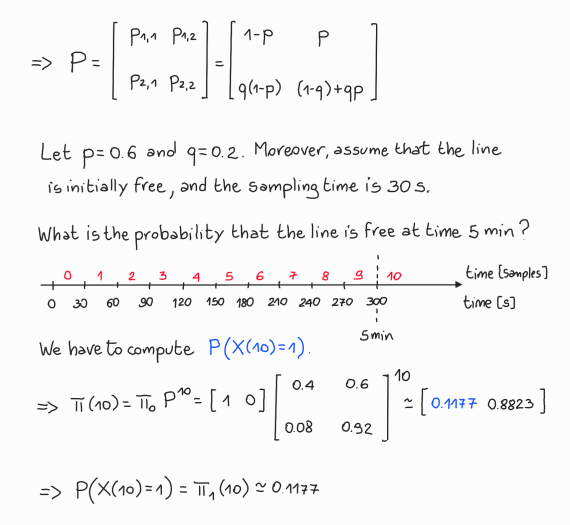 => P = [ P1,1 P1,2 ; P2,1 P2,2 ] = [ 1-p p ; q(1-p) (1-q)+qp ]
Let p=0.6 and q=0.2. Moreover, assume that the line
is initially free, and the sampling time is 30 s.
What is the probability that the line is free at time 5 min?
0 1 2 3 4 5 6 7 8 9 10 time [samples]
0 30 60 90 120 150 180 210 240 270 300 time [s]
5min
We have to compute P(X(10)=1).
=> π(10) = π₀ P¹⁰ = [ 1 0 ] [ 0.4 0.6 ; 0.08 0.92 ]¹⁰ ≃ [ 0.1177 0.8823 ]
=> P(X(10)=1) = π₁(10) ≃ 0.1177